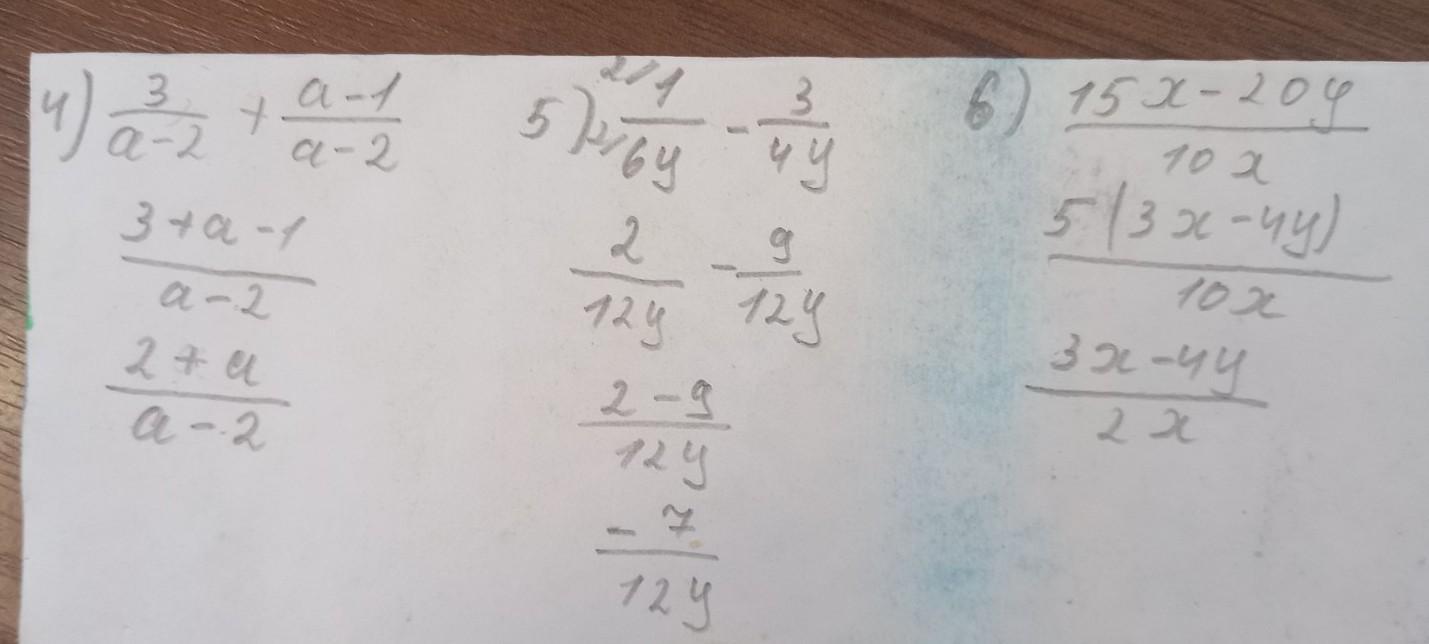 4) 3/(a-2) + (a-1)/(a-2)
(3+a-1)/(a-2)
(2+a)/(a-2)
5) 2/1/2/6y - 3/4y
2/12y - 9/12y
(2-9)/12y
-7/12y
6) (15x-20y)/10x
5(3x-4y)/10x
(3x-4y)/2x